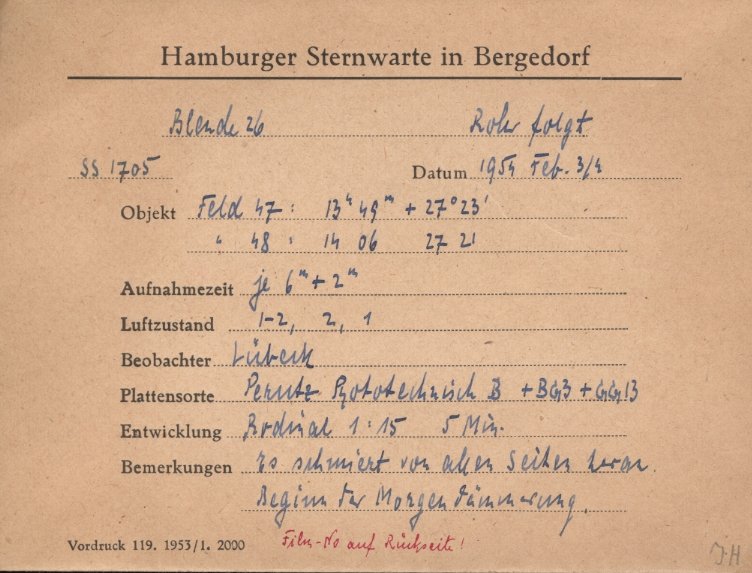 Hamburger Sternwarte in Bergedorf
Blende 26 Rohr folgt
SS 1705 Datum 1954 Feb. 3/4
Objekt Feld 47 : 13h 49m + 27° 23'
" 48 : 14 06 27 21
Aufnahmezeit je 6m + 2m
Luftzustand 1-2, 2, 1
Beobachter Lübeck
Plattensorte Perutz Phototechnisch B + BG3 + GG13
Entwicklung Rodinal 1:15 5 Min.
Bemerkungen Es schmiert von allen Seiten heran.
Beginn der Morgendämmerung.
Vordruck 119. 1953/1. 2000 Film-No auf Rückseite!
J.H